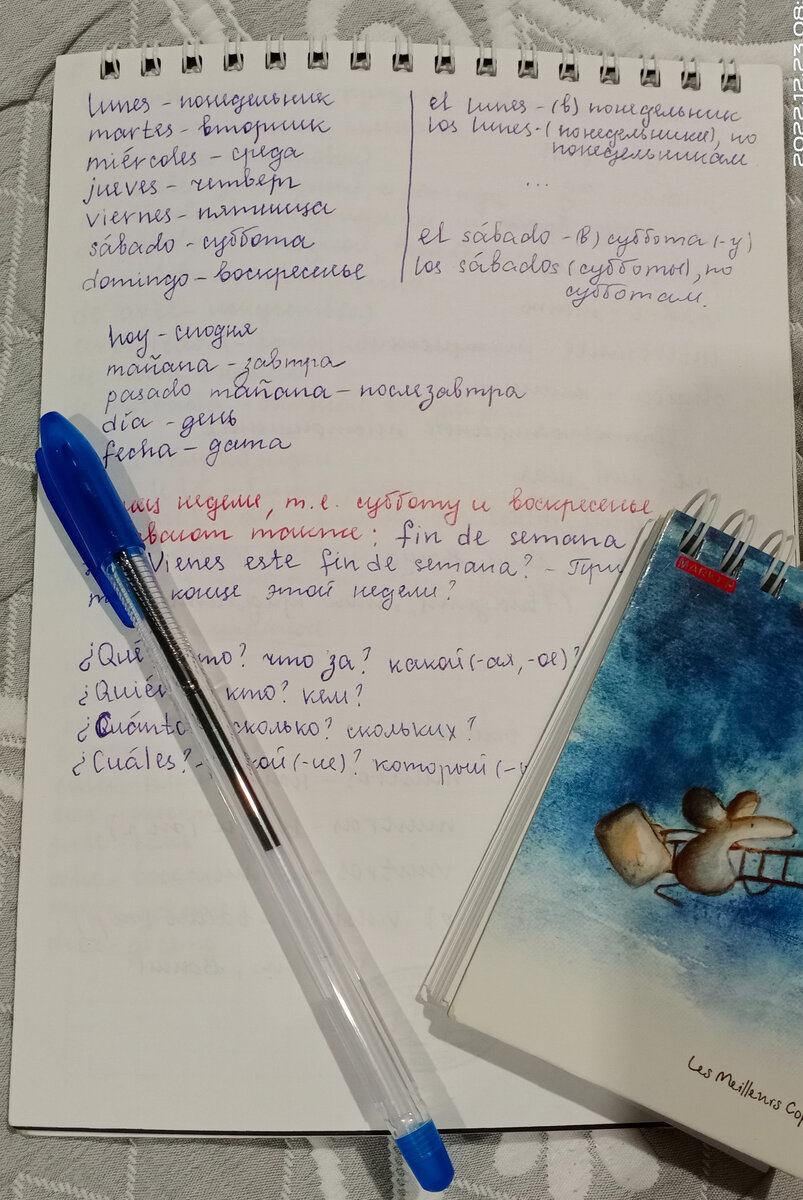 lunes - понедельник
martes - вторник
miércoles - среда
jueves - четверг
viernes - пятница
sábado - суббота
domingo - воскресенье
el lunes - (в) понедельник
los lunes - (понедельники), по
понедельникам.
...
el sábado - (в) суббота (-у)
los sábados (субботы), по
субботам.
hoy - сегодня
mañana - завтра
pasado mañana - послезавтра
día - день
fecha - дата
недели, т.е. субботу и воскресенье
также: fin de semana
Vienes este fin de semana? -
конце этой недели?
¿Qué что за? какой (-ая, -ое)?
кто? кем?
сколько? скольких?
¿Cuáles? - который
MARKER
Les Meilleurs
2022.12.23 08: